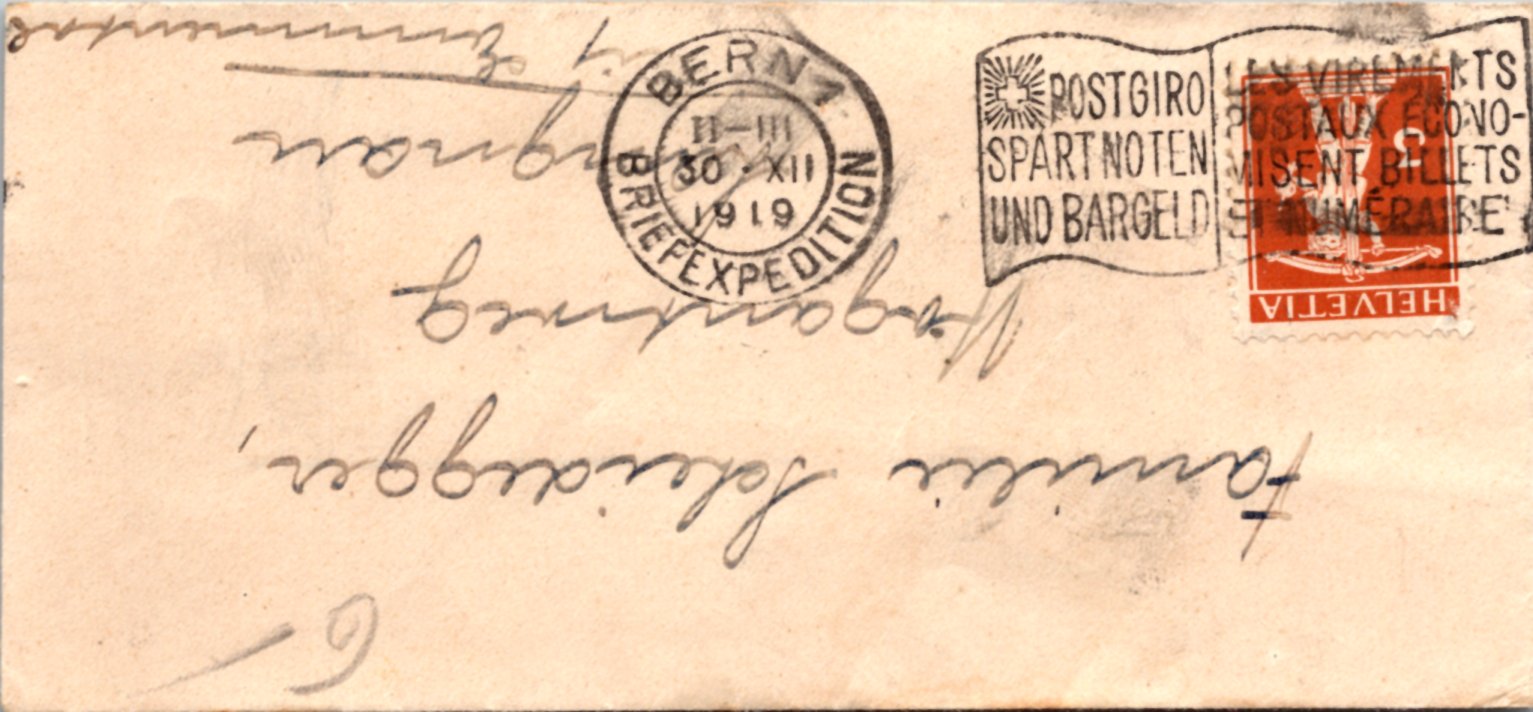 BERN 1
II-III
30·XII
1919
BRIEFEXPEDITION
POSTGIRO
SPART NOTEN
UND BARGELD
LES VIREMENTS
POSTAUX ÉCONO-
MISENT BILLETS
ET NUMÉRAIRE
5
HELVETIA
Familie Scheidegger,
Langnau
Emmental
6